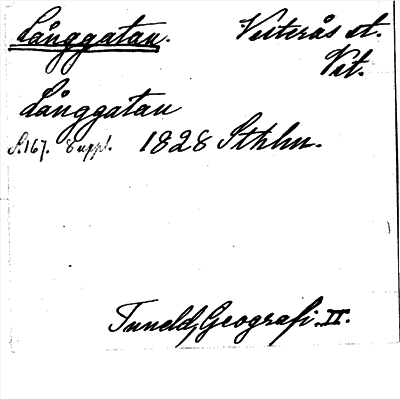 Långgatan. Västerås st.
Vst.
Långgatan
S.167. Suppl. 1828 Sthlm.
Tuneld, Geografi. II.